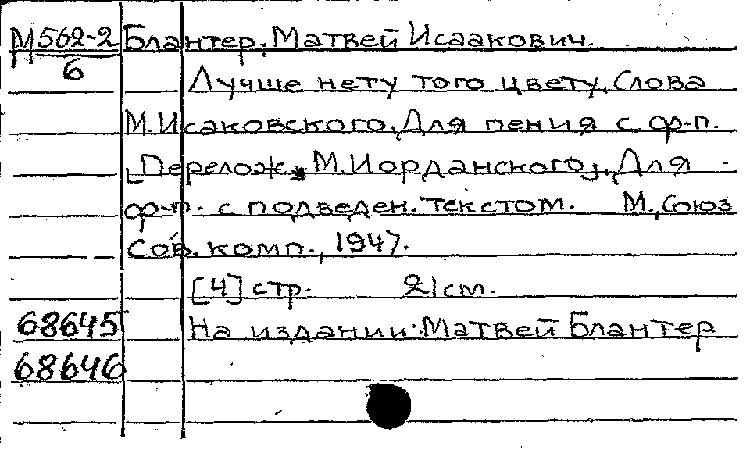 М562-2 Блантер, Матвей Исаакович.
6
Лучше нету того цвету. Слова
М. Исаковского. Для пения с ф-п.
[Перелож. М. Иорданского]. Для
ф-п. с подведен. текстом. М., Союз
Сов. комп., 1947.
[4] стр. 21 cm.
68645 На издании: Матвей Блантер
68646